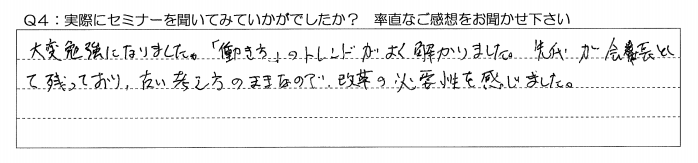 Q4：実際にセミナーを聞いてみていかがでしたか？　率直なご感想をお聞かせ下さい
大変勉強になりました。「働き方」のトレンドがよく解かりました。先代が会長とし
て残っており、古い考え方のままなので、改革の必要性を感じました。